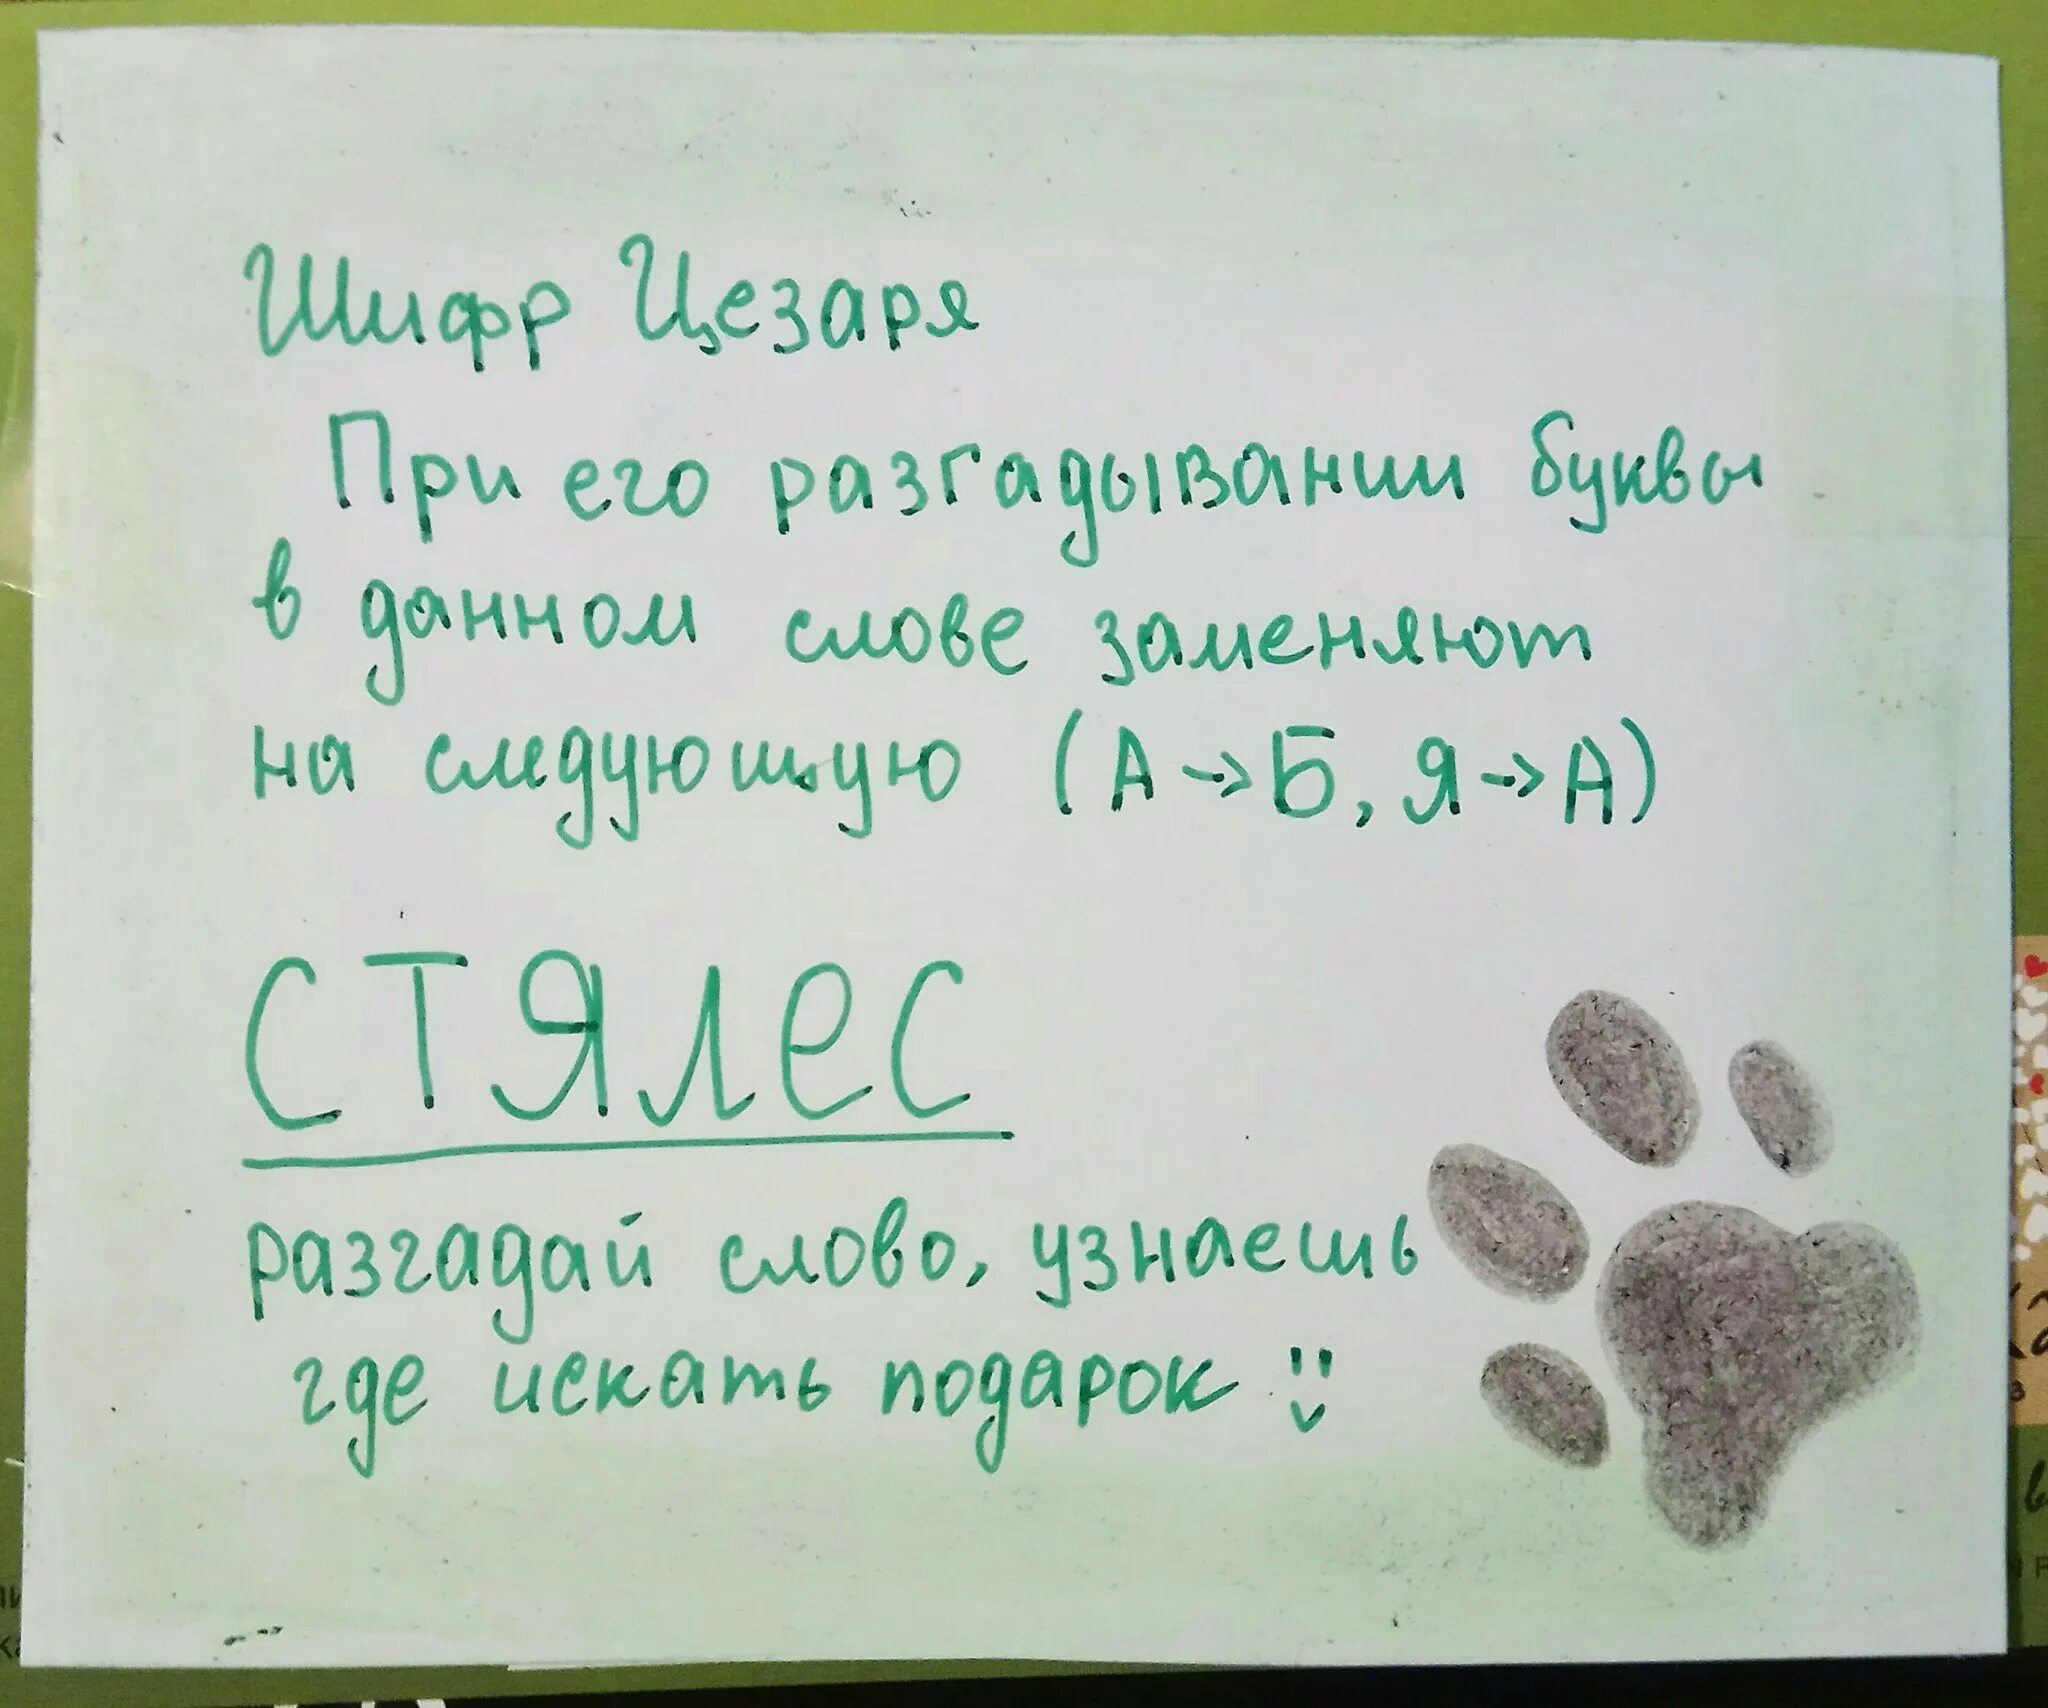 Шифр Цезаря
При его разгадывании буквы
в данном слове заменяют
на следующую (А→Б, Я→А)
СТЯЛЕС
разгадай слово, узнаешь
где искать подарок